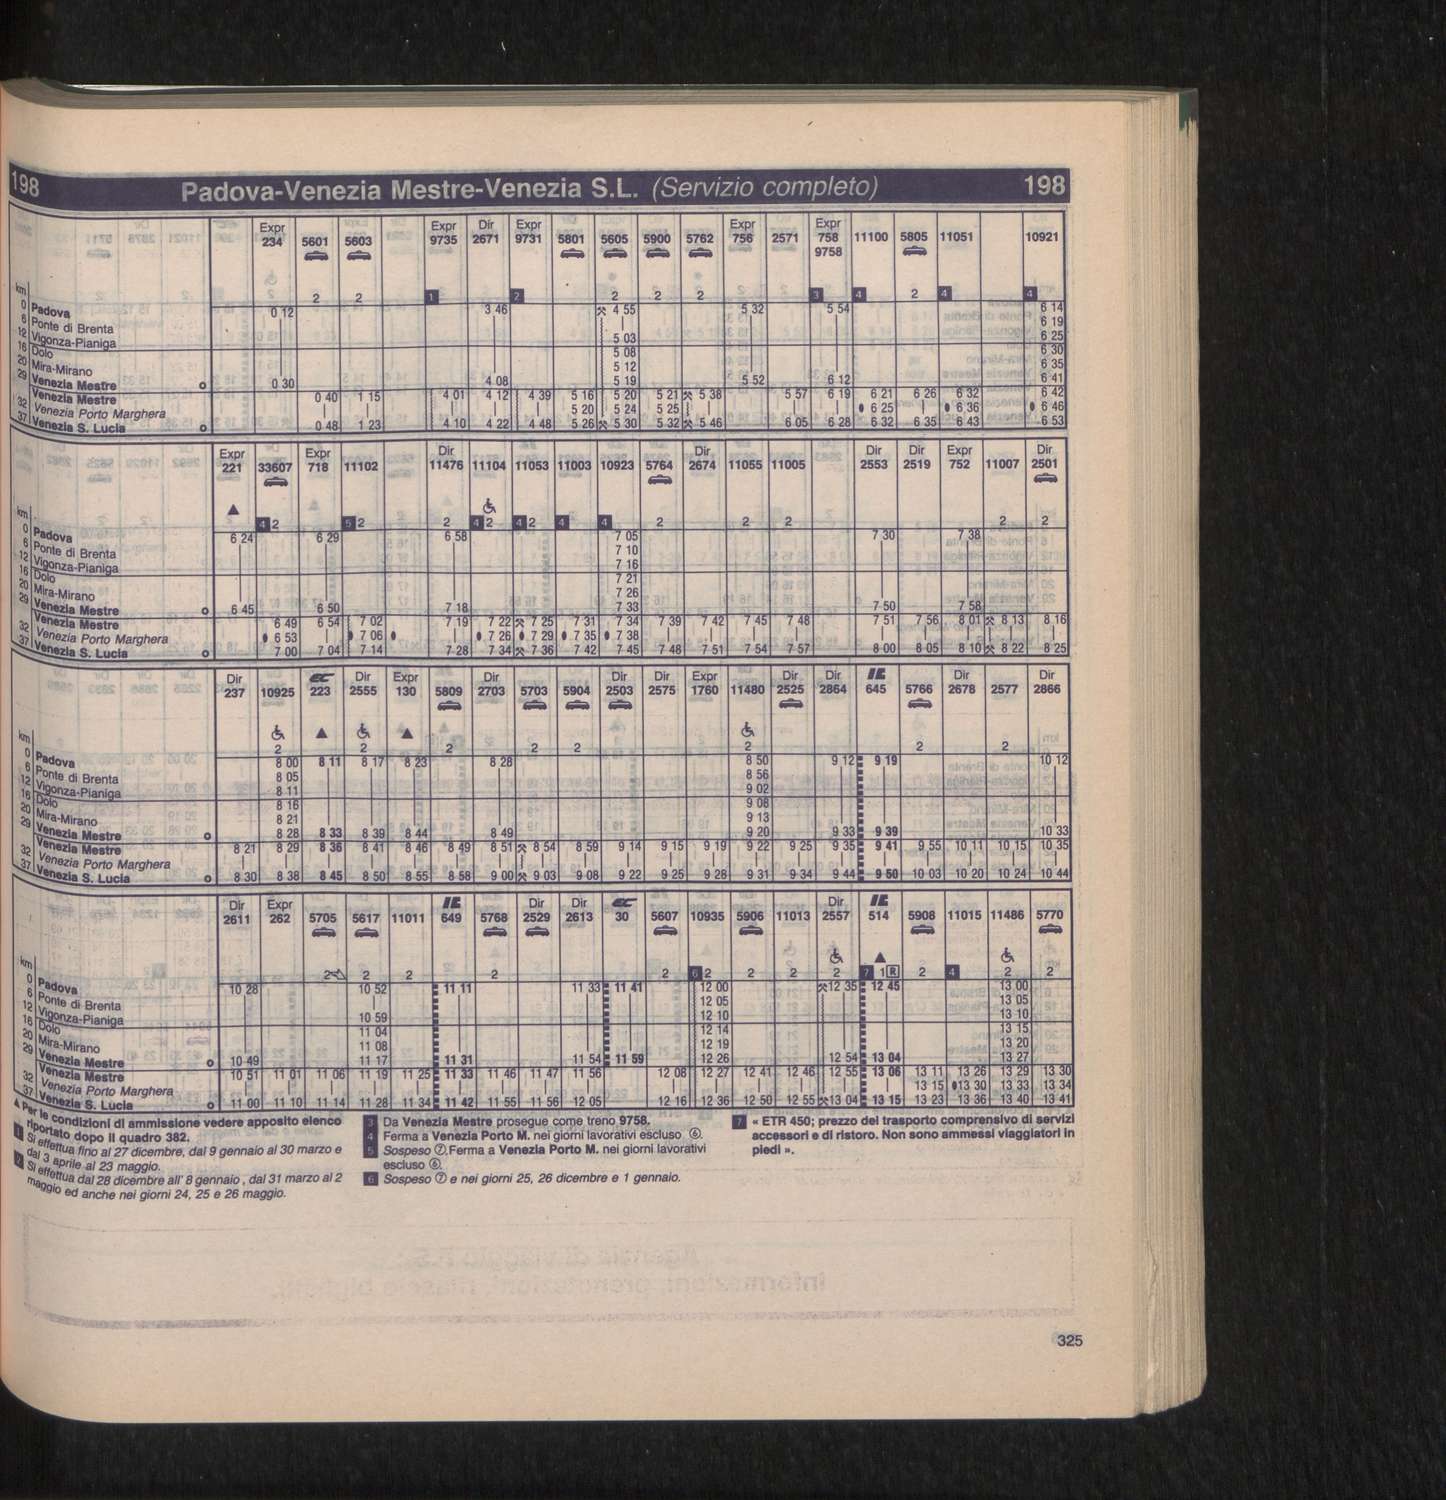 198 Padova-Venezia Mestre-Venezia S.L. (Servizio completo) 198
Expr Expr Dir Expr Expr Expr
234 5601 5603 9735 2671 9731 5801 5605 5900 5762 756 2571 758 11100 5805 11051 10921
9758
2 2 1 2 2 2 2 3 4 2 4 4
km
0 Padova 0 12 3 46 4 55 5 32 5 54 6 14
6 Ponte di Brenta 6 19
12 Vigonza-Pianiga 5 03 6 25
16 Dolo 5 08 6 30
20 Mira-Mirano 5 12 6 35
29 Venezia Mestre o 0 30 4 08 5 19 5 52 6 12 6 41
Venezia Mestre 0 40 1 15 4 01 4 12 4 39 5 16 5 20 5 21 5 38 5 57 6 19 6 21 6 26 6 32 6 42
32 Venezia Porto Marghera 5 20 5 24 5 25 6 25 6 36 6 46
37 Venezia S. Lucia o 0 48 1 23 4 10 4 22 4 48 5 26 5 30 5 32 5 46 6 05 6 28 6 32 6 35 6 43 6 53
Expr Expr Dir Dir Dir Dir Expr Dir
221 33607 718 11102 11476 11104 11053 11003 10923 5764 2674 11055 11005 2553 2519 752 11007 2501
4 2 5 2 2 4 2 4 2 4 4 2 2 2 2 2
km
0 Padova 6 24 6 29 6 58 7 05 7 30 7 38
6 Ponte di Brenta 7 10
12 Vigonza-Pianiga 7 16
16 Dolo 7 21
20 Mira-Mirano 7 26
29 Venezia Mestre o 6 45 6 50 7 18 7 33 7 50 7 58
Venezia Mestre 6 49 6 54 7 02 7 19 7 22 7 25 7 31 7 34 7 39 7 42 7 45 7 48 7 51 7 56 8 01 8 13 8 16
32 Venezia Porto Marghera 6 53 7 06 7 26 7 29 7 35 7 38
37 Venezia S. Lucia o 7 00 7 04 7 14 7 28 7 34 7 36 7 42 7 45 7 48 7 51 7 54 7 57 8 00 8 05 8 10 8 22 8 25
Dir EC Dir Expr Dir Dir Expr Dir Dir IC Dir Dir
237 10925 223 2555 130 5809 2703 5703 5904 2503 2575 1760 11480 2525 2864 645 5766 2678 2577 2866
2 2 2 2 2 2 2 2
km
0 Padova 8 00 8 11 8 17 8 23 8 28 8 50 9 12 9 19 10 12
6 Ponte di Brenta 8 05 8 56
12 Vigonza-Pianiga 8 11 9 02
16 Dolo 8 16 9 08
20 Mira-Mirano 8 21 9 13
29 Venezia Mestre o 8 28 8 33 8 39 8 44 8 49 9 20 9 33 9 39 10 33
Venezia Mestre 8 21 8 29 8 36 8 41 8 46 8 49 8 51 8 54 8 59 9 14 9 15 9 19 9 22 9 25 9 35 9 41 9 55 10 11 10 15 10 35
32 Venezia Porto Marghera
37 Venezia S. Lucia o 8 30 8 38 8 45 8 50 8 55 8 58 9 00 9 03 9 08 9 22 9 25 9 28 9 31 9 34 9 44 9 50 10 03 10 20 10 24 10 44
Dir Expr IC Dir Dir EC Dir IC
2611 262 5705 5617 11011 649 5768 2529 2613 30 5607 10935 5906 11013 2557 514 5908 11015 11486 5770
2 2 2 2 2 6 2 2 2 2 7 1 R 2 4 2 2
km
0 Padova 10 28 10 52 11 11 11 33 11 41 12 00 12 35 12 45 13 00
6 Ponte di Brenta 12 05 13 05
12 Vigonza-Pianiga 10 59 12 10 13 10
16 Dolo 11 04 12 14 13 15
20 Mira-Mirano 11 08 12 19 13 20
29 Venezia Mestre o 10 49 11 17 11 31 11 54 11 59 12 26 12 54 13 04 13 27
Venezia Mestre 10 51 11 01 11 06 11 19 11 25 11 33 11 46 11 47 11 56 12 08 12 27 12 41 12 46 12 55 13 06 13 11 13 26 13 29 13 30
32 Venezia Porto Marghera 13 15 13 30 13 33 13 34
37 Venezia S. Lucia o 11 00 11 10 11 14 11 28 11 34 11 42 11 55 11 56 12 05 12 16 12 36 12 50 12 55 13 04 13 15 13 23 13 36 13 40 13 41
▲ Per le condizioni di ammissione vedere apposito elenco
riportato dopo il quadro 382.
1 Si effettua fino al 27 dicembre, dal 9 gennaio al 30 marzo e
dal 3 aprile al 23 maggio.
2 Si effettua dal 28 dicembre all' 8 gennaio , dal 31 marzo al 2
maggio ed anche nei giorni 24, 25 e 26 maggio.
3 Da Venezia Mestre prosegue come treno 9758.
4 Ferma a Venezia Porto M. nei giorni lavorativi escluso ⑥.
5 Sospeso ⑦. Ferma a Venezia Porto M. nei giorni lavorativi
escluso ⑥.
6 Sospeso ⑦ e nei giorni 25, 26 dicembre e 1 gennaio.
7 « ETR 450; prezzo del trasporto comprensivo di servizi
accessori e di ristoro. Non sono ammessi viaggiatori in
piedi ».
325